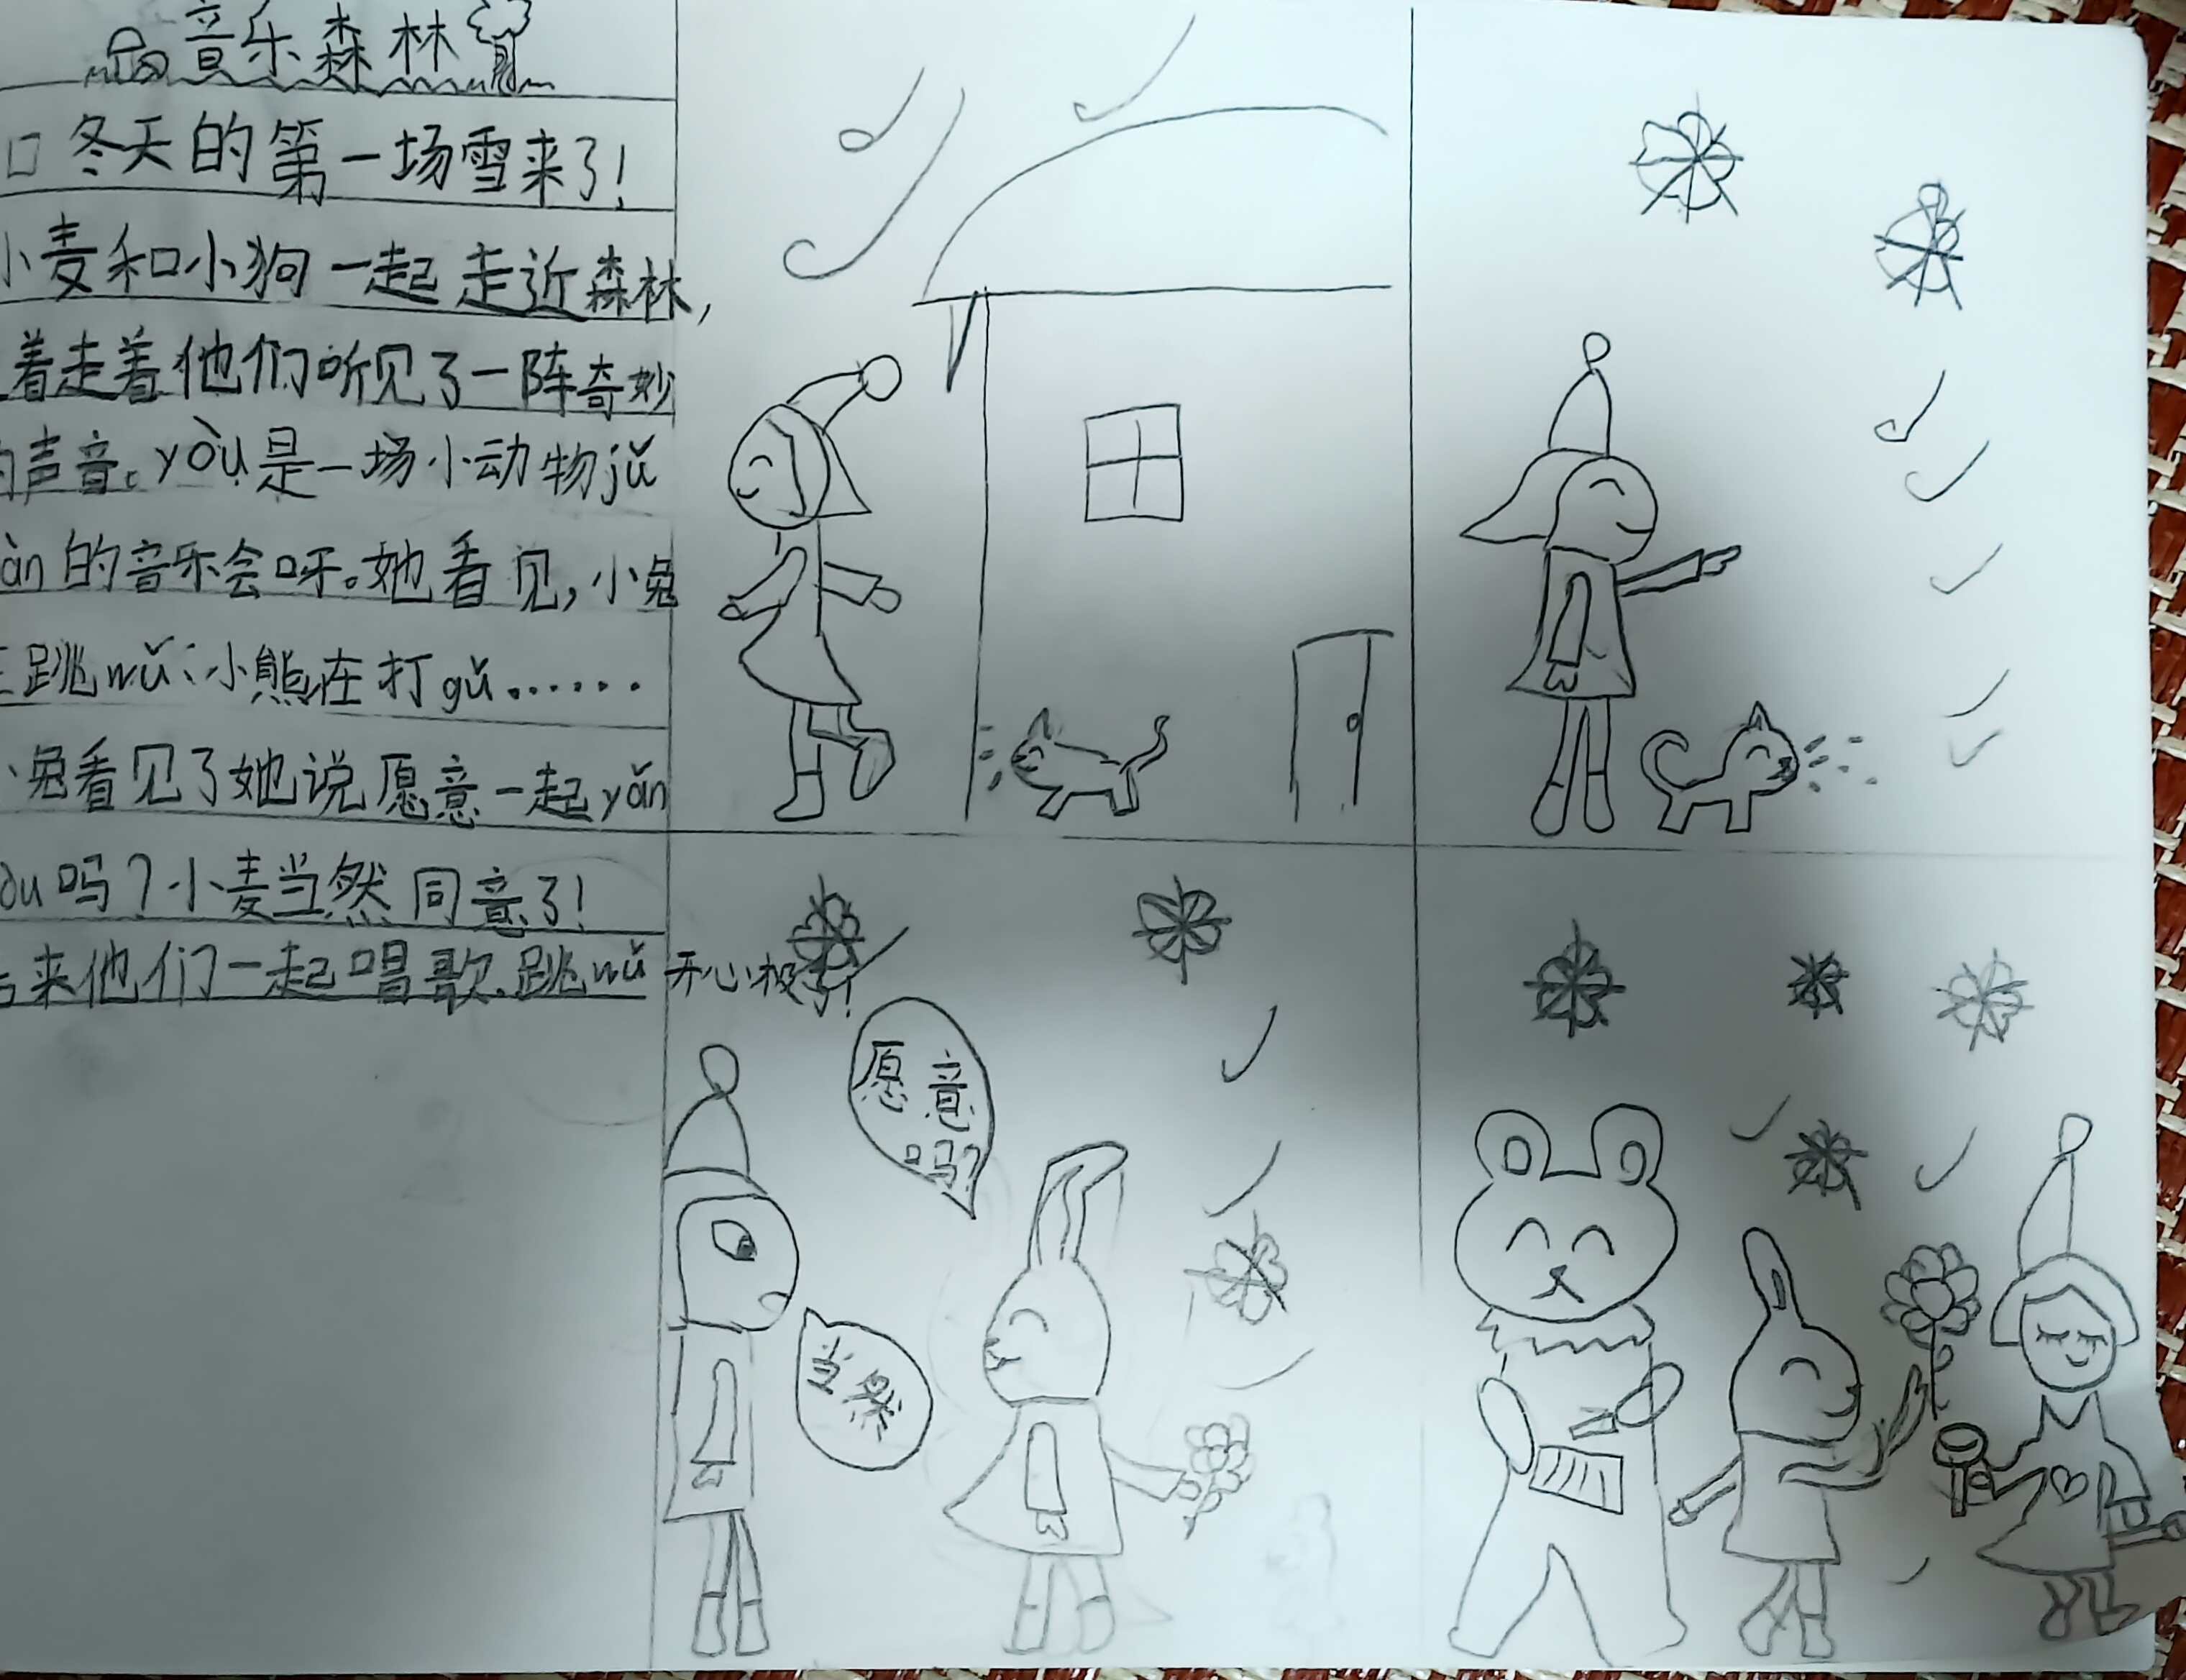 音乐森林
冬天的第一场雪来了!
小麦和小狗一起走近森林,
着走着他们听见了一阵奇妙
的声音。yòu是一场小动物jǔ
àn的音乐会呀。她看见,小兔
在跳wǔ;小熊在打gǔ......
小兔看见了她说愿意一起yǎn
òu吗?小麦当然同意了!
后来他们一起唱歌、跳wǔ开心极了!
愿意吗?
当然